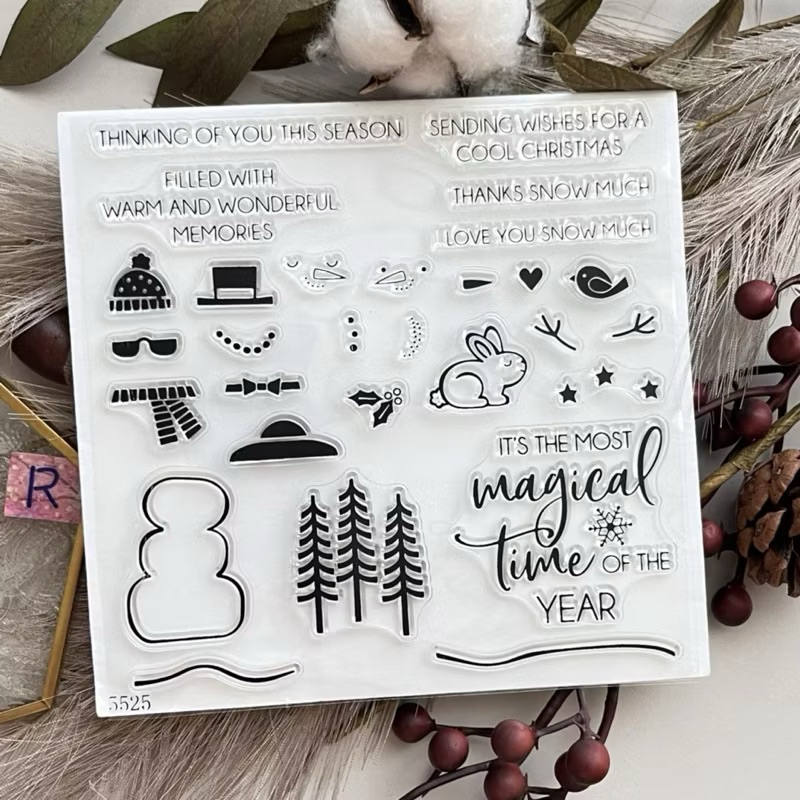 THINKING OF YOU THIS SEASON
SENDING WISHES FOR A
COOL CHRISTMAS
FILLED WITH
WARM AND WONDERFUL
MEMORIES
THANKS SNOW MUCH
LOVE YOU SNOW MUCH
IT'S THE MOST
magical
time OF THE
YEAR
R
5525